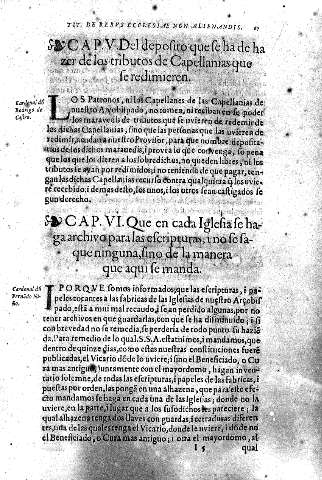 TIT. DE REBVS ECCLESIAE NON ALIENANDIS. 67
CAP. V. Del deposito que se ha de ha
zer de los tributos de Capellanias que
se redimieren.
Cardenal dō
Rodrigo de
Castro.
LOS Patronos, ni los Capellanes de las Capellanias de
nuestro Arçobispado, no tomen, ni reciban en su poder
los marauedis de tributos que se uvieren de redemir de
los dichas Capellanias, sino que las personas que las uvieren de
redimir, acudan a nuestro Provisor, para que nombre deposita-
rios de los dichos marauedis, i provea lo que convenga, so pena
que los que los dieren a los sobredichos, no queden libres, ni los
tributos se ayan por redimidos; i no teniendo de que pagar, ten-
gan los dichas Capellanias recurso contra qualquiera q̄ los uvie
re recebido; i demas desto, los unos, i los otros sean castigados se
gun derecho.
CAP. VI. Que en cada Iglesia se ha-
ga archivo para las escripturas, i no se sa-
que ninguna, sino de la manera
que aqui se manda.
Cardenal dō
Fernādo Ni-
ño.
IPORQVE somos informados, que las escripturas, i pa
peles tocantes a las fabricas de las Iglesias de nuestro Arçobis-
pado, está a mui mal recaudo, i se an perdido algunas, por no
tener archivos en que guardarlas, con que se ha disminuido, i si
con brevedad no se remedia, se perderia de todo punto su haziē
da. Para remedio de lo qual. S.S.A. estatuimos, i mandamos, que
dentro de quinze dias, como estas nuestras constituciones fueré
publicadas, el Vicario dōde lo uviere, i sino el Beneficiado, o Cu
ra mas antiguo, juntamente con el mayordomo, hagan inven-
tario solemne, de todas las escripturas, i papeles de las fabricas, i
puestas por orden, las pongā en una alhazena, que para este efe-
cto mandamos se haga en cada una de las Iglesias; donde no la
uviere, en la parte, i lugar que a los susodichos les pareciere; la
qual alhazena tenga dos llaves con guardas, i cerraduras diferen
tes, una de las quales tenga el Vicario, donde le uviere, i dōde no
el Beneficiado, o Cura mas antiguo; i otra el mayordomo, al
I 5 qual